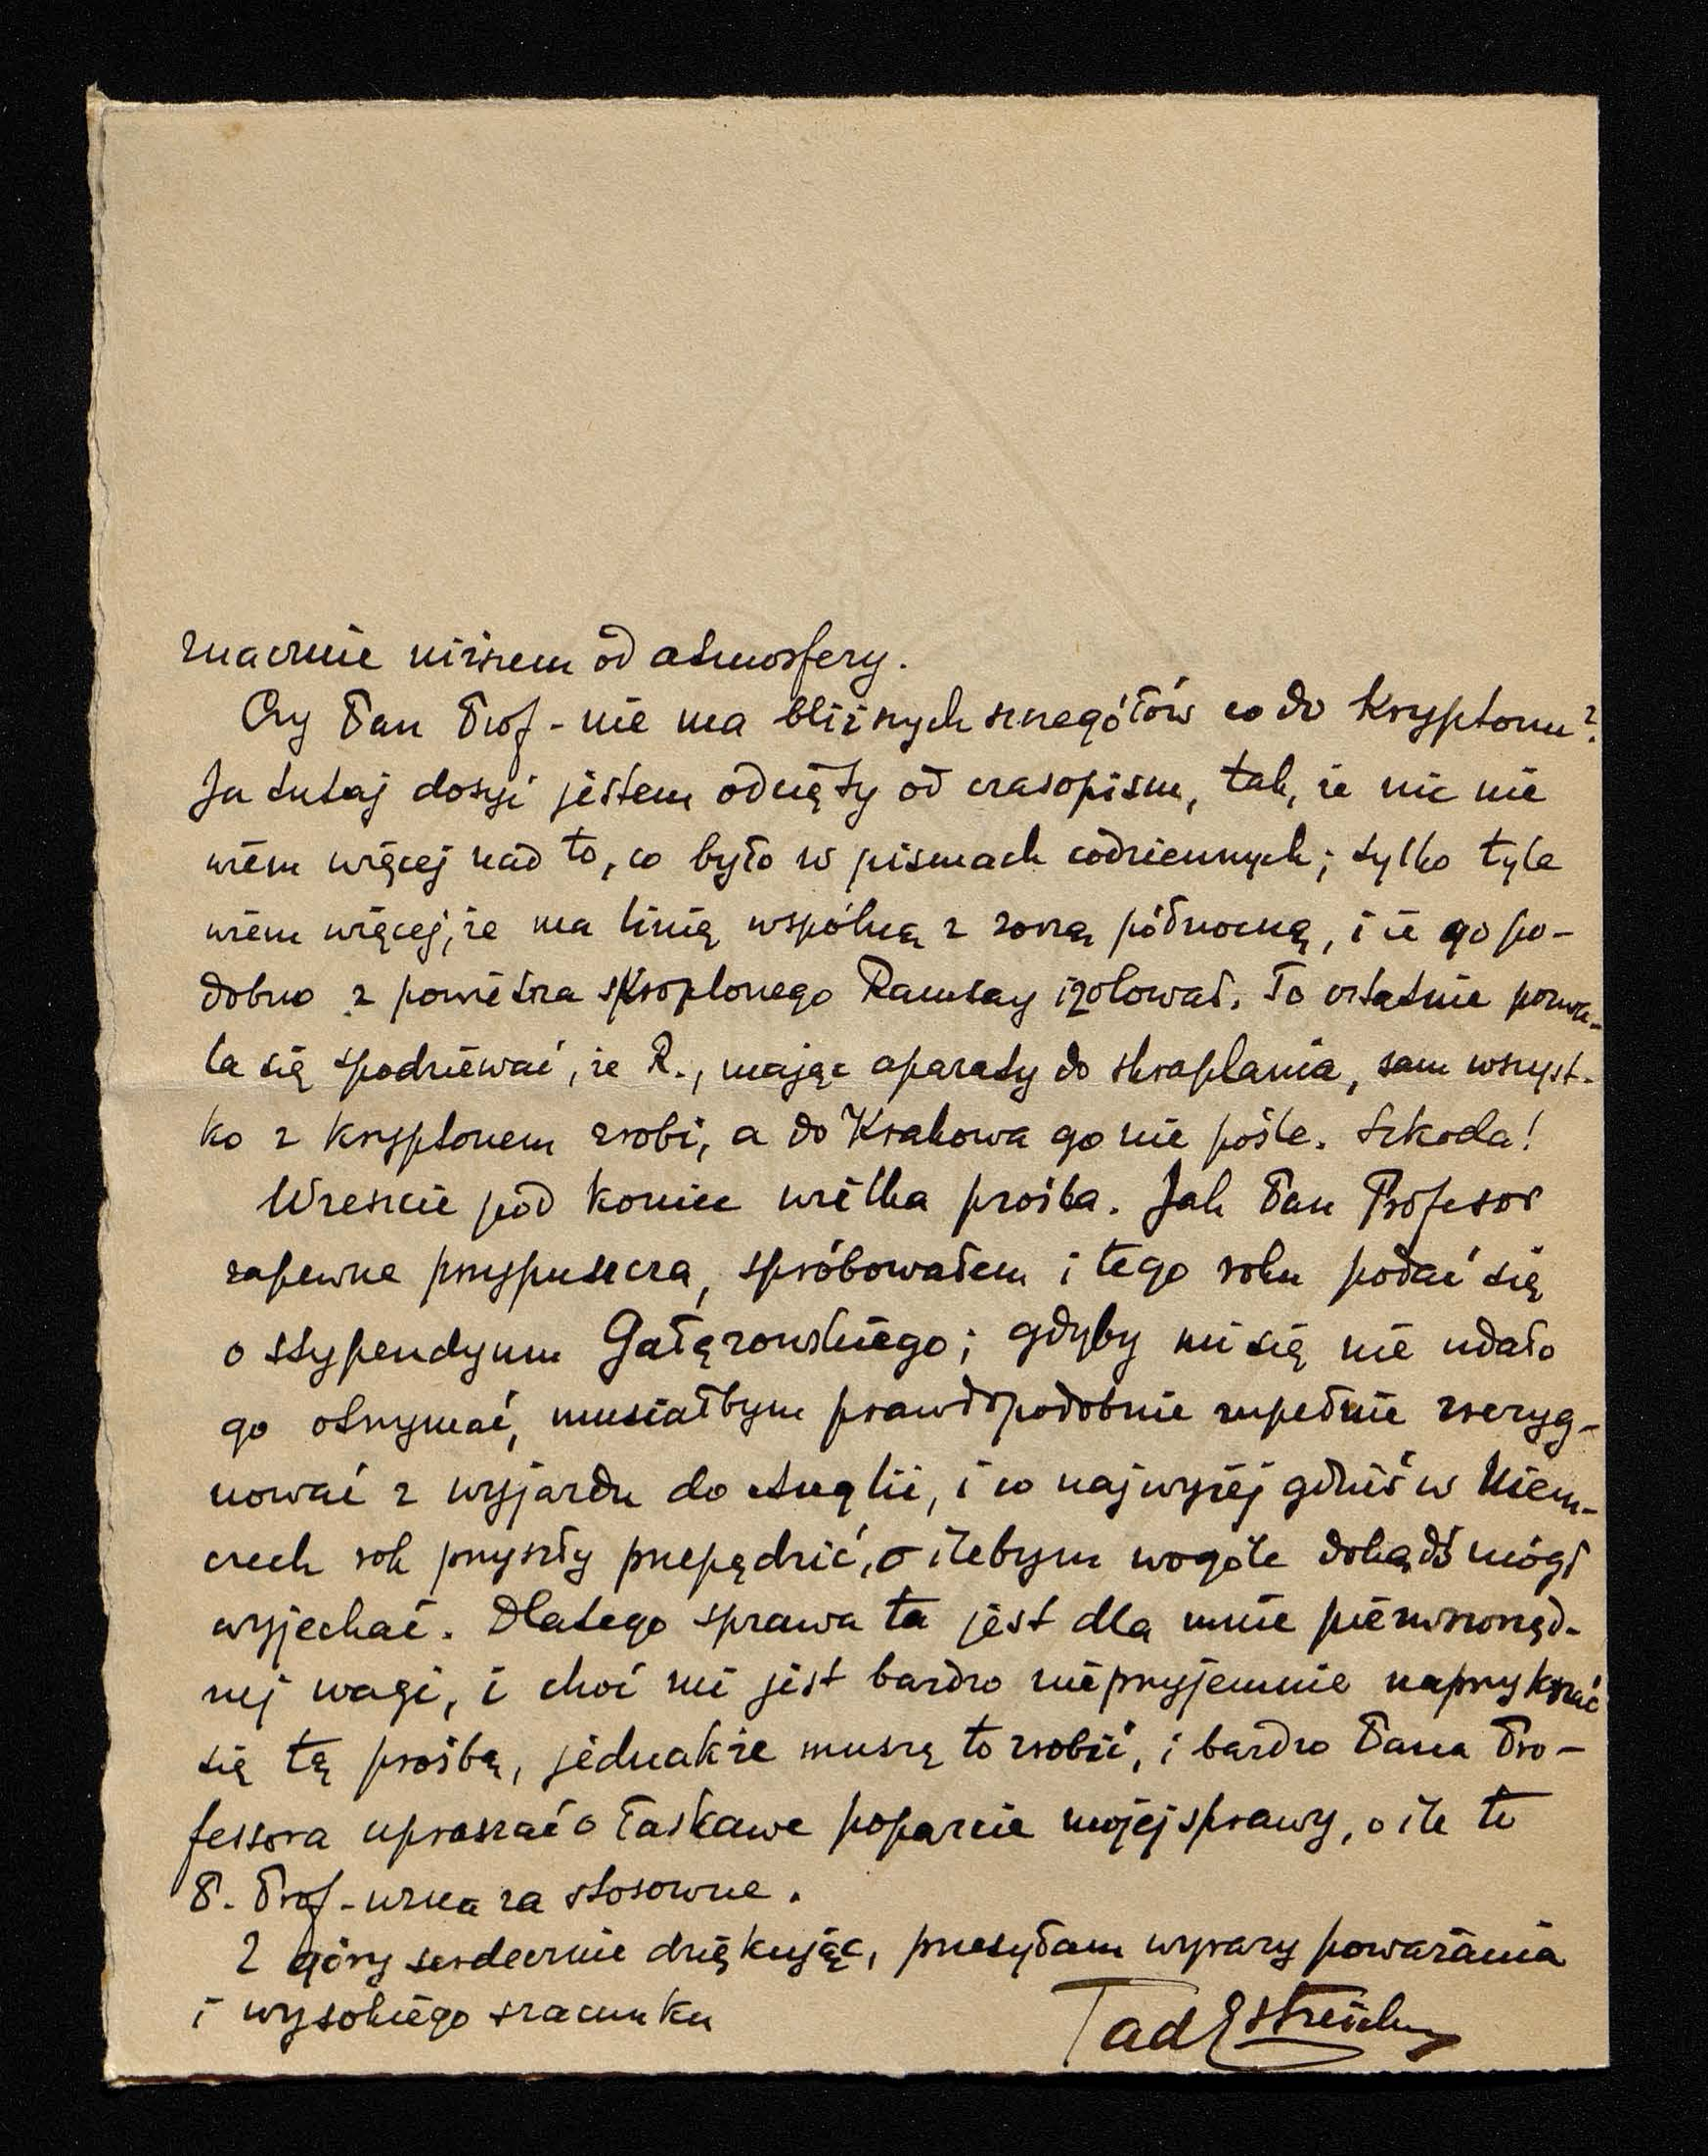 znacznie niższem od atmosfery.
Czy Pan Prof. nie ma bliższych szczegółów co do Kryptonu?
Ja tutaj dosyć jestem odcięty od czasopism, tak, że nic nie
wiem więcej nad to, co było w pismach codziennych; tylko tyle
wiem więcej, że ma linię wspólną z zorzą północną, i że go po-
dobno z powietrza skroplonego Ramsay izolował. To ostatnie pozwa-
la się spodziewać, że R., mając aparaty do skraplania, sam wszyst-
ko z kryptonem zrobi, a do Krakowa go nie pośle. Szkoda!
Wreszcie pod koniec wielka prośba. Jak Pan Profesor
zapewne przypuszcza, spróbowałem i tego roku podać się
o stypendyum Gałęzowskiego; gdyby mi się nie udało
go otrzymać, musiałbym prawdopodobnie zupełnie zrezyg-
nować z wyjazdu do Anglii, i co najwyżej gdzieś w Niem-
czech rok przyszły przepędzić, o ilebym wogóle dokądś mógł
wyjechać. Dlatego sprawa ta jest dla mnie pierwszorzęd-
nej wagi, i choć mi jest bardzo nieprzyjemnie naprzykrzać
się tą prośbą, jednakże muszę to zrobić, i bardzo Pana Pro-
fessora upraszać o łaskawe poparcie mojej sprawy, o ile to
P. Prof. uzna za stosowne.
Z góry serdecznie dziękując, przesyłam wyrazy poważania
i wysokiego szacunku
Tad Estreicher